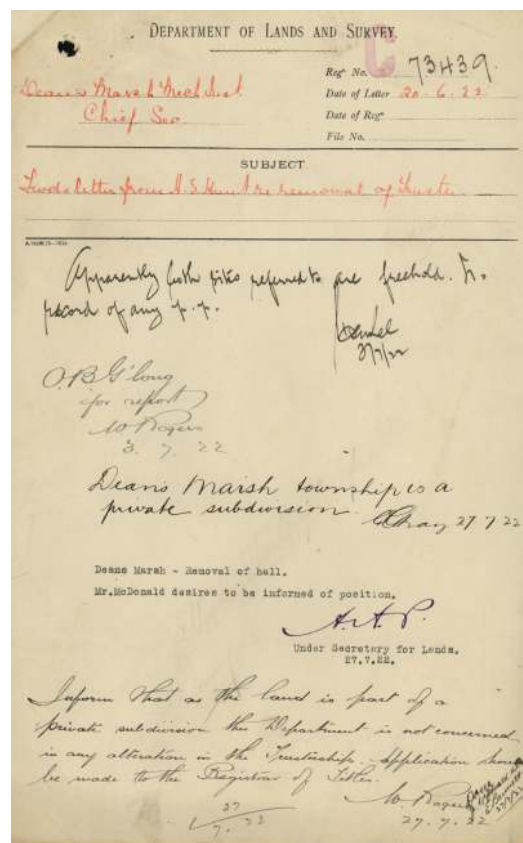 DEPARTMENT OF LANDS AND SURVEY.
Regn No. C 73439.
Deans Marsh Mech Inst
Date of Letter 20.6.22
Chief Sec
Date of Regn
File No.
SUBJECT.
Fwds letter from A.S. Hunt re removal of Trustee
Apparently both sites referred to are freehold. No
record of any p.p.
3/7/22
O.B G'long
for report
W Rogers
3. 7. 22
Deans Marsh township is a
private subdivision.
27 7 22
Deans Marsh - Removal of hall.
Mr.McDonald desires to be informed of position.
A.A.P.
Under Secretary for Lands.
27.7.22.
Inform that as the land is part of a
private subdivision the Department is not concerned
in any alteration in the Trusteeship. Application should
be made to the Registrar of Titles.
W Rogers
27
7. 22
27.7.22